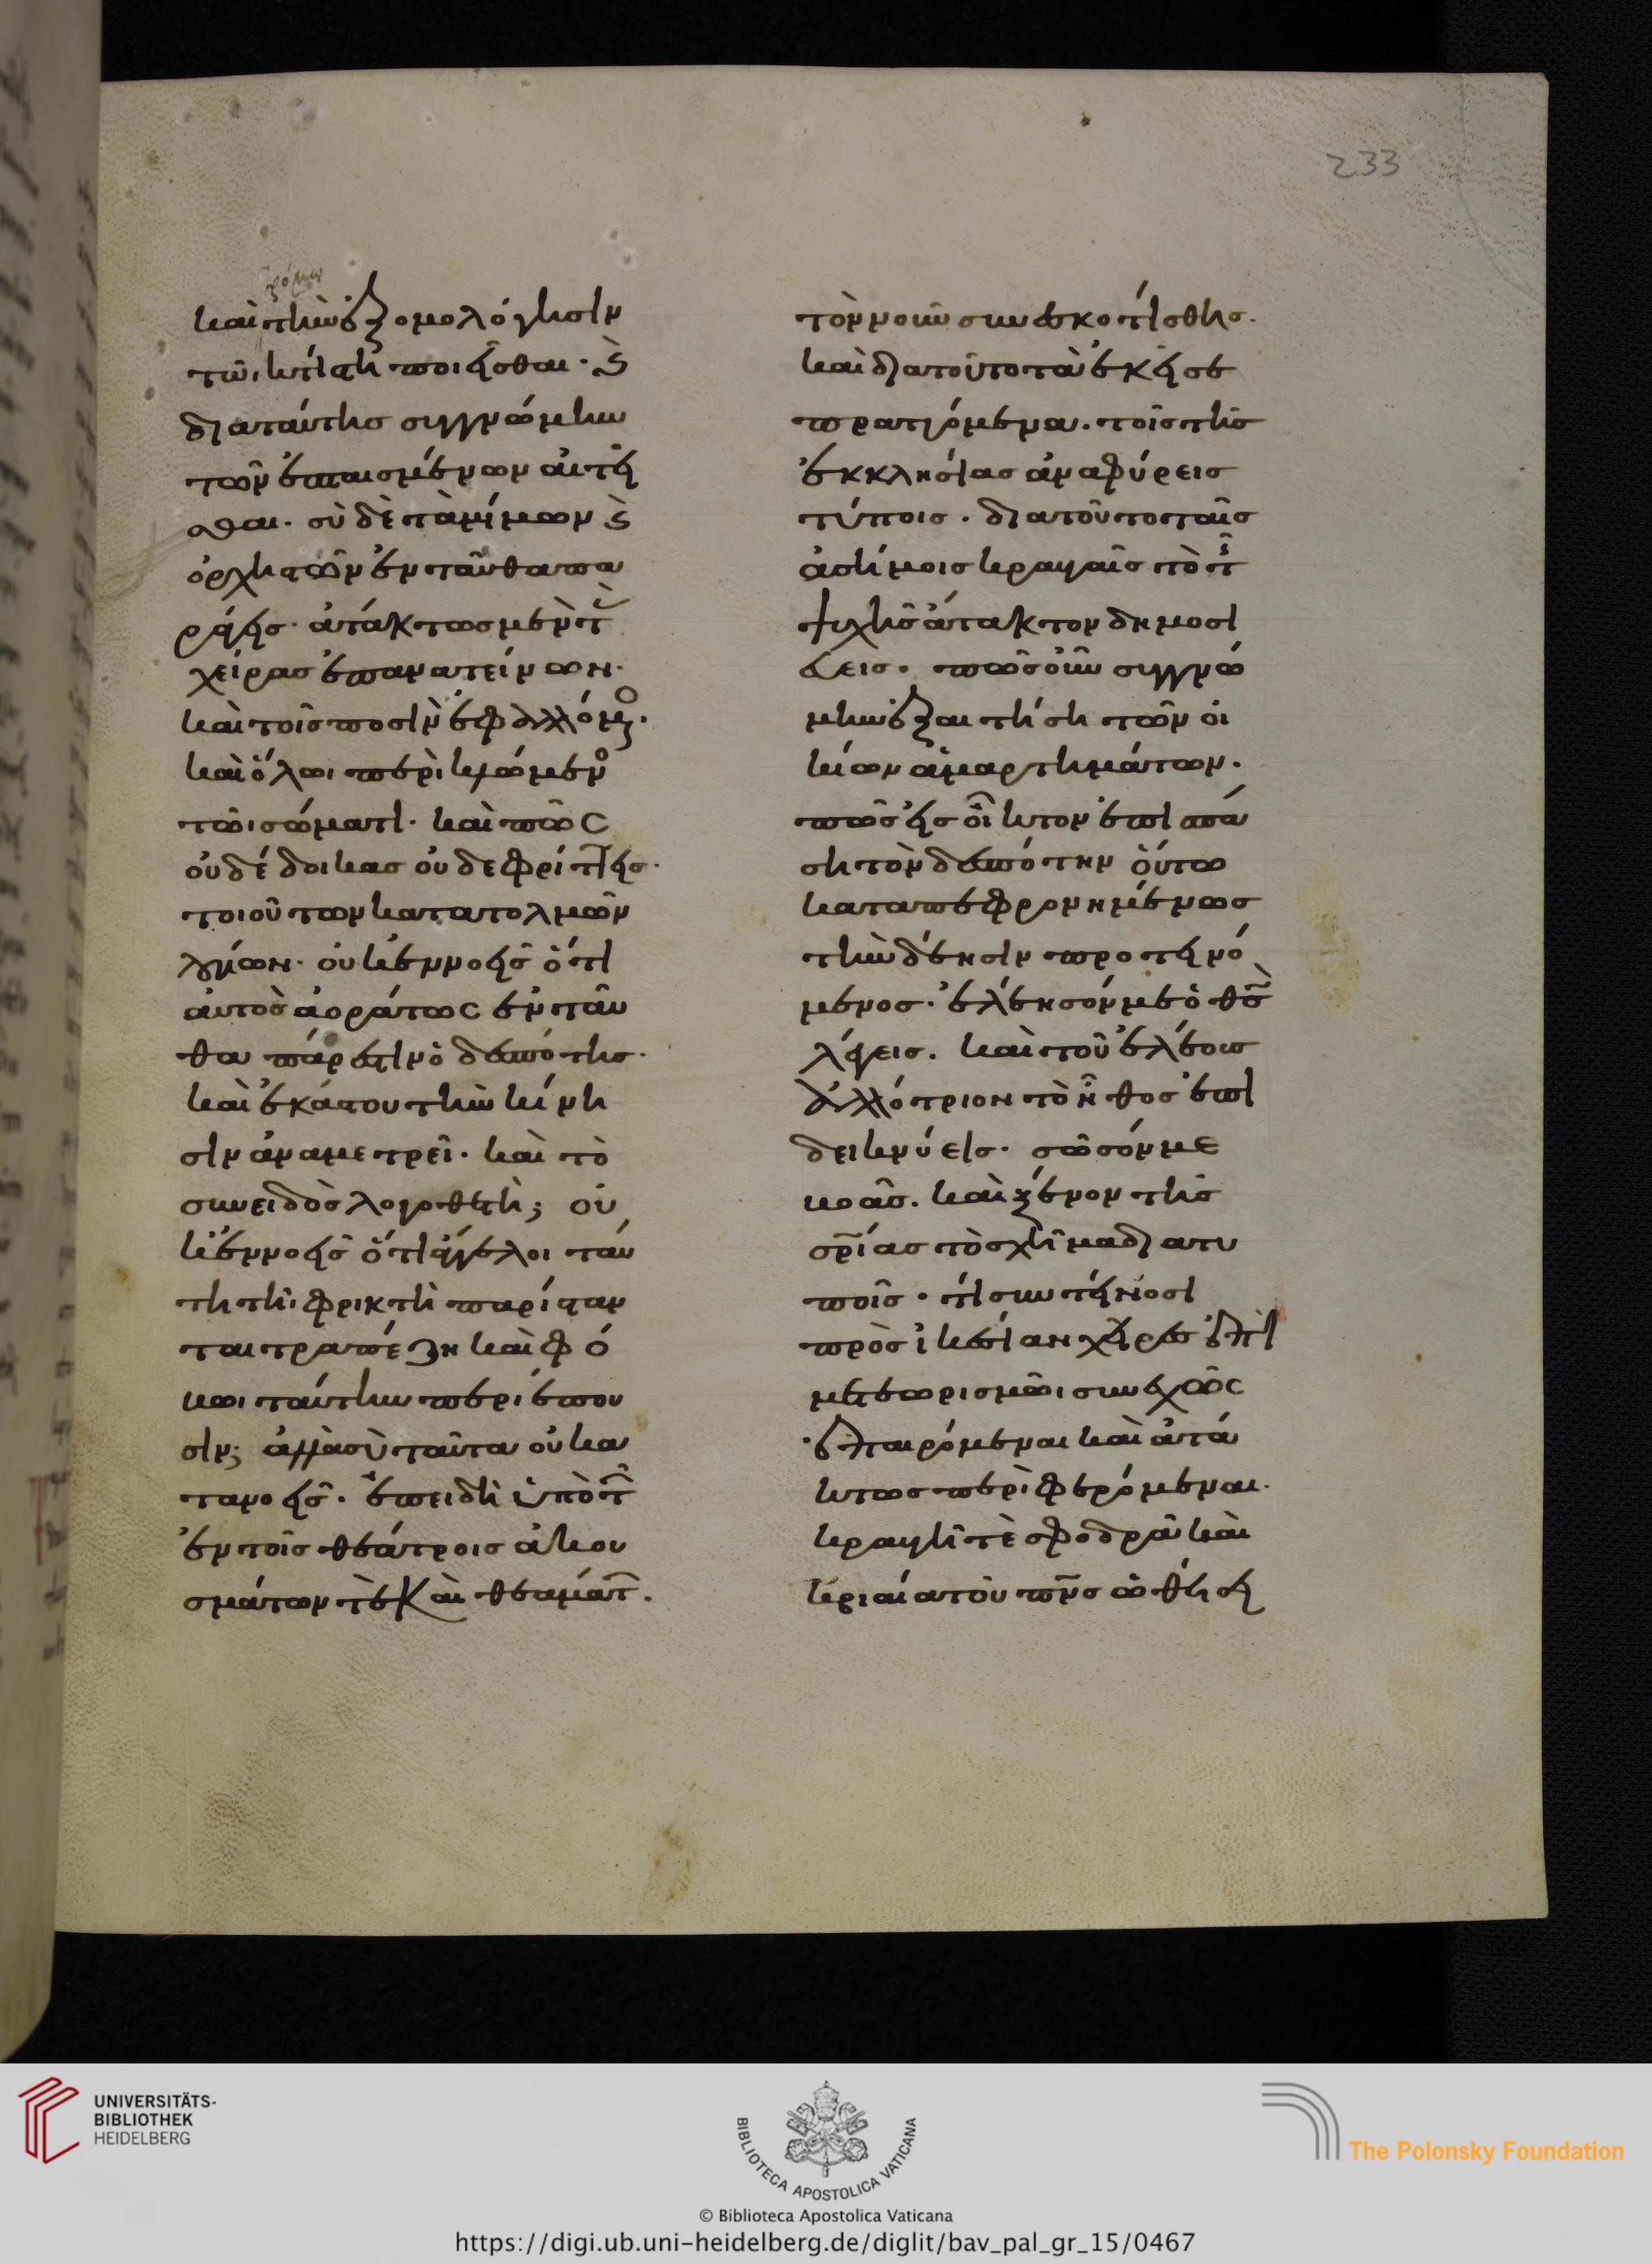 233
τρόμω
καὶ τὴν ἐξομολόγησιν
τῶι κτίστη ποιεῖσθαι· καὶ
διὰ ταύτης συγγνώμην
τῶν ἐπταισμένων αἰτεῖ
σθαι. σὺ δὲ τὰ μίμων καὶ
ὀρχηστῶν ἐνταῦθα πα
ράγεις· ἀτάκτως μὲν τὰς
χεῖρας ἐπανατείνων.
καὶ τοῖς ποσὶν ἐφαλλόμενος.
καὶ ὅλωι περικλώμενος
τῶι σώματι. καὶ πῶς
οὐ δέδοικας οὐδε φρίττεις.
τοιούτων κατατολμῶν
λογίων. οὐκ ἐννοεῖς ὅτι
αὐτὸς ἀοράτως ἐνταῦ
θα πάρεστιν ὁ δεσπότης.
καὶ ἑκάστου τὴν κίνη
σιν ἀναμετρεῖ. καὶ τὸ
συνειδὸς λογοθετεῖ; οὐ
κ ἐννοεῖς ὅτι ἄγγελοι ταύ
τη τῆι φρικτῆ παρίσταν
ται τραπέζη καὶ φό
βωι ταύτην περιέπου
σιν; ἀλλὰ σὺ ταῦτα οὐ κα
τανοεῖς. ἐπειδὴ ὑπὸ τῶν
ἐν τοῖς θεάτροις ἀκου
σμάτων τὲ καὶ θεαμάτων.
τὸν νοῦν συνεσκοτίσθης.
καὶ διατοῦτο τὰ ἐκεῖσε
πραττόμενα. τοῖς τῆς
ἐκκλησίας ἀναφύρεις
τύποις. διατοῦτο ταῖς
ἀσήμοις κραυγαῖς τὸ τῆς
ψυχῆς ἄτακτον δημοσι
εύεις. πῶς οὖν συγγνώ
μην ἐξαιτήση τῶν οἰ
κείων ἁμαρτημάτων.
πῶς εἰς οἶκτον ἐπισπά
ση τὸν δεσπότην οὕτω
καταπεφρονημένως
τὴν δέησιν προτεινό
μενος. ἐλέησόν με ὁ θς
λέγεις. καὶ τοῦ ἐλέους
ἀλλότριον τὸ ἦθος ἐπι
δεικνύεις. σῶσόν με
βοᾶς. καὶ ξένον τῆς
σρίας τὸ σχῆμα διατυ
ποῖς. τί συντείνουσι
πρὸς ἱκεσίαν χεῖρες ἐπὶ
μετεωρισμῶι συνεχῶς
ἐπαιρόμεναι καὶ ἀτά
κτως περιφερόμεναι.
κραυγή τὲ σφοδρὰ καὶ
τῆι βιαία τοῦ πνς ὠθήσει
UNIVERSITÄTS-
BIBLIOTHEK
HEIDELBERG
BIBLIOTECA APOSTOLICA VATICANA
The Polonsky Foundation
© Biblioteca Apostolica Vaticana
https://digi.ub.uni-heidelberg.de/diglit/bav_pal_gr_15/0467